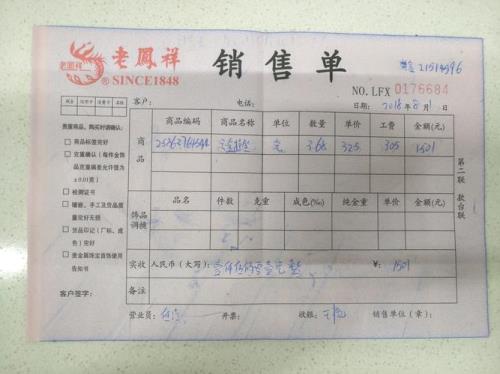 老鳳祥
老鳳祥
®SINCE1848
销售单
NO.LFX 0176684
日期: 2018年 月 日
客户:
电话:
贵重商品,购买时请确认:
商品标签完好
克重确认(每件金饰品克重偏差允许值为±0.01克)
检测证书
镶嵌、手工及货品质量完好无损
货品印记(厂标、成色)完好
贵金属珠宝首饰使用告知书
客户签字:
商品
商品编码 商品名称 单位 数量 单价 工费 金额(元)
克 3.68 325 305 1501
饰品调换
品名 件数 克重 成色(‰) 纯金重 单价 金额(元)
实收 人民币(大写): 壹仟伍佰零壹元整 ¥: 1501
备注
营业员: 开票: 收银: 销售单位(章):
第二联
款台联